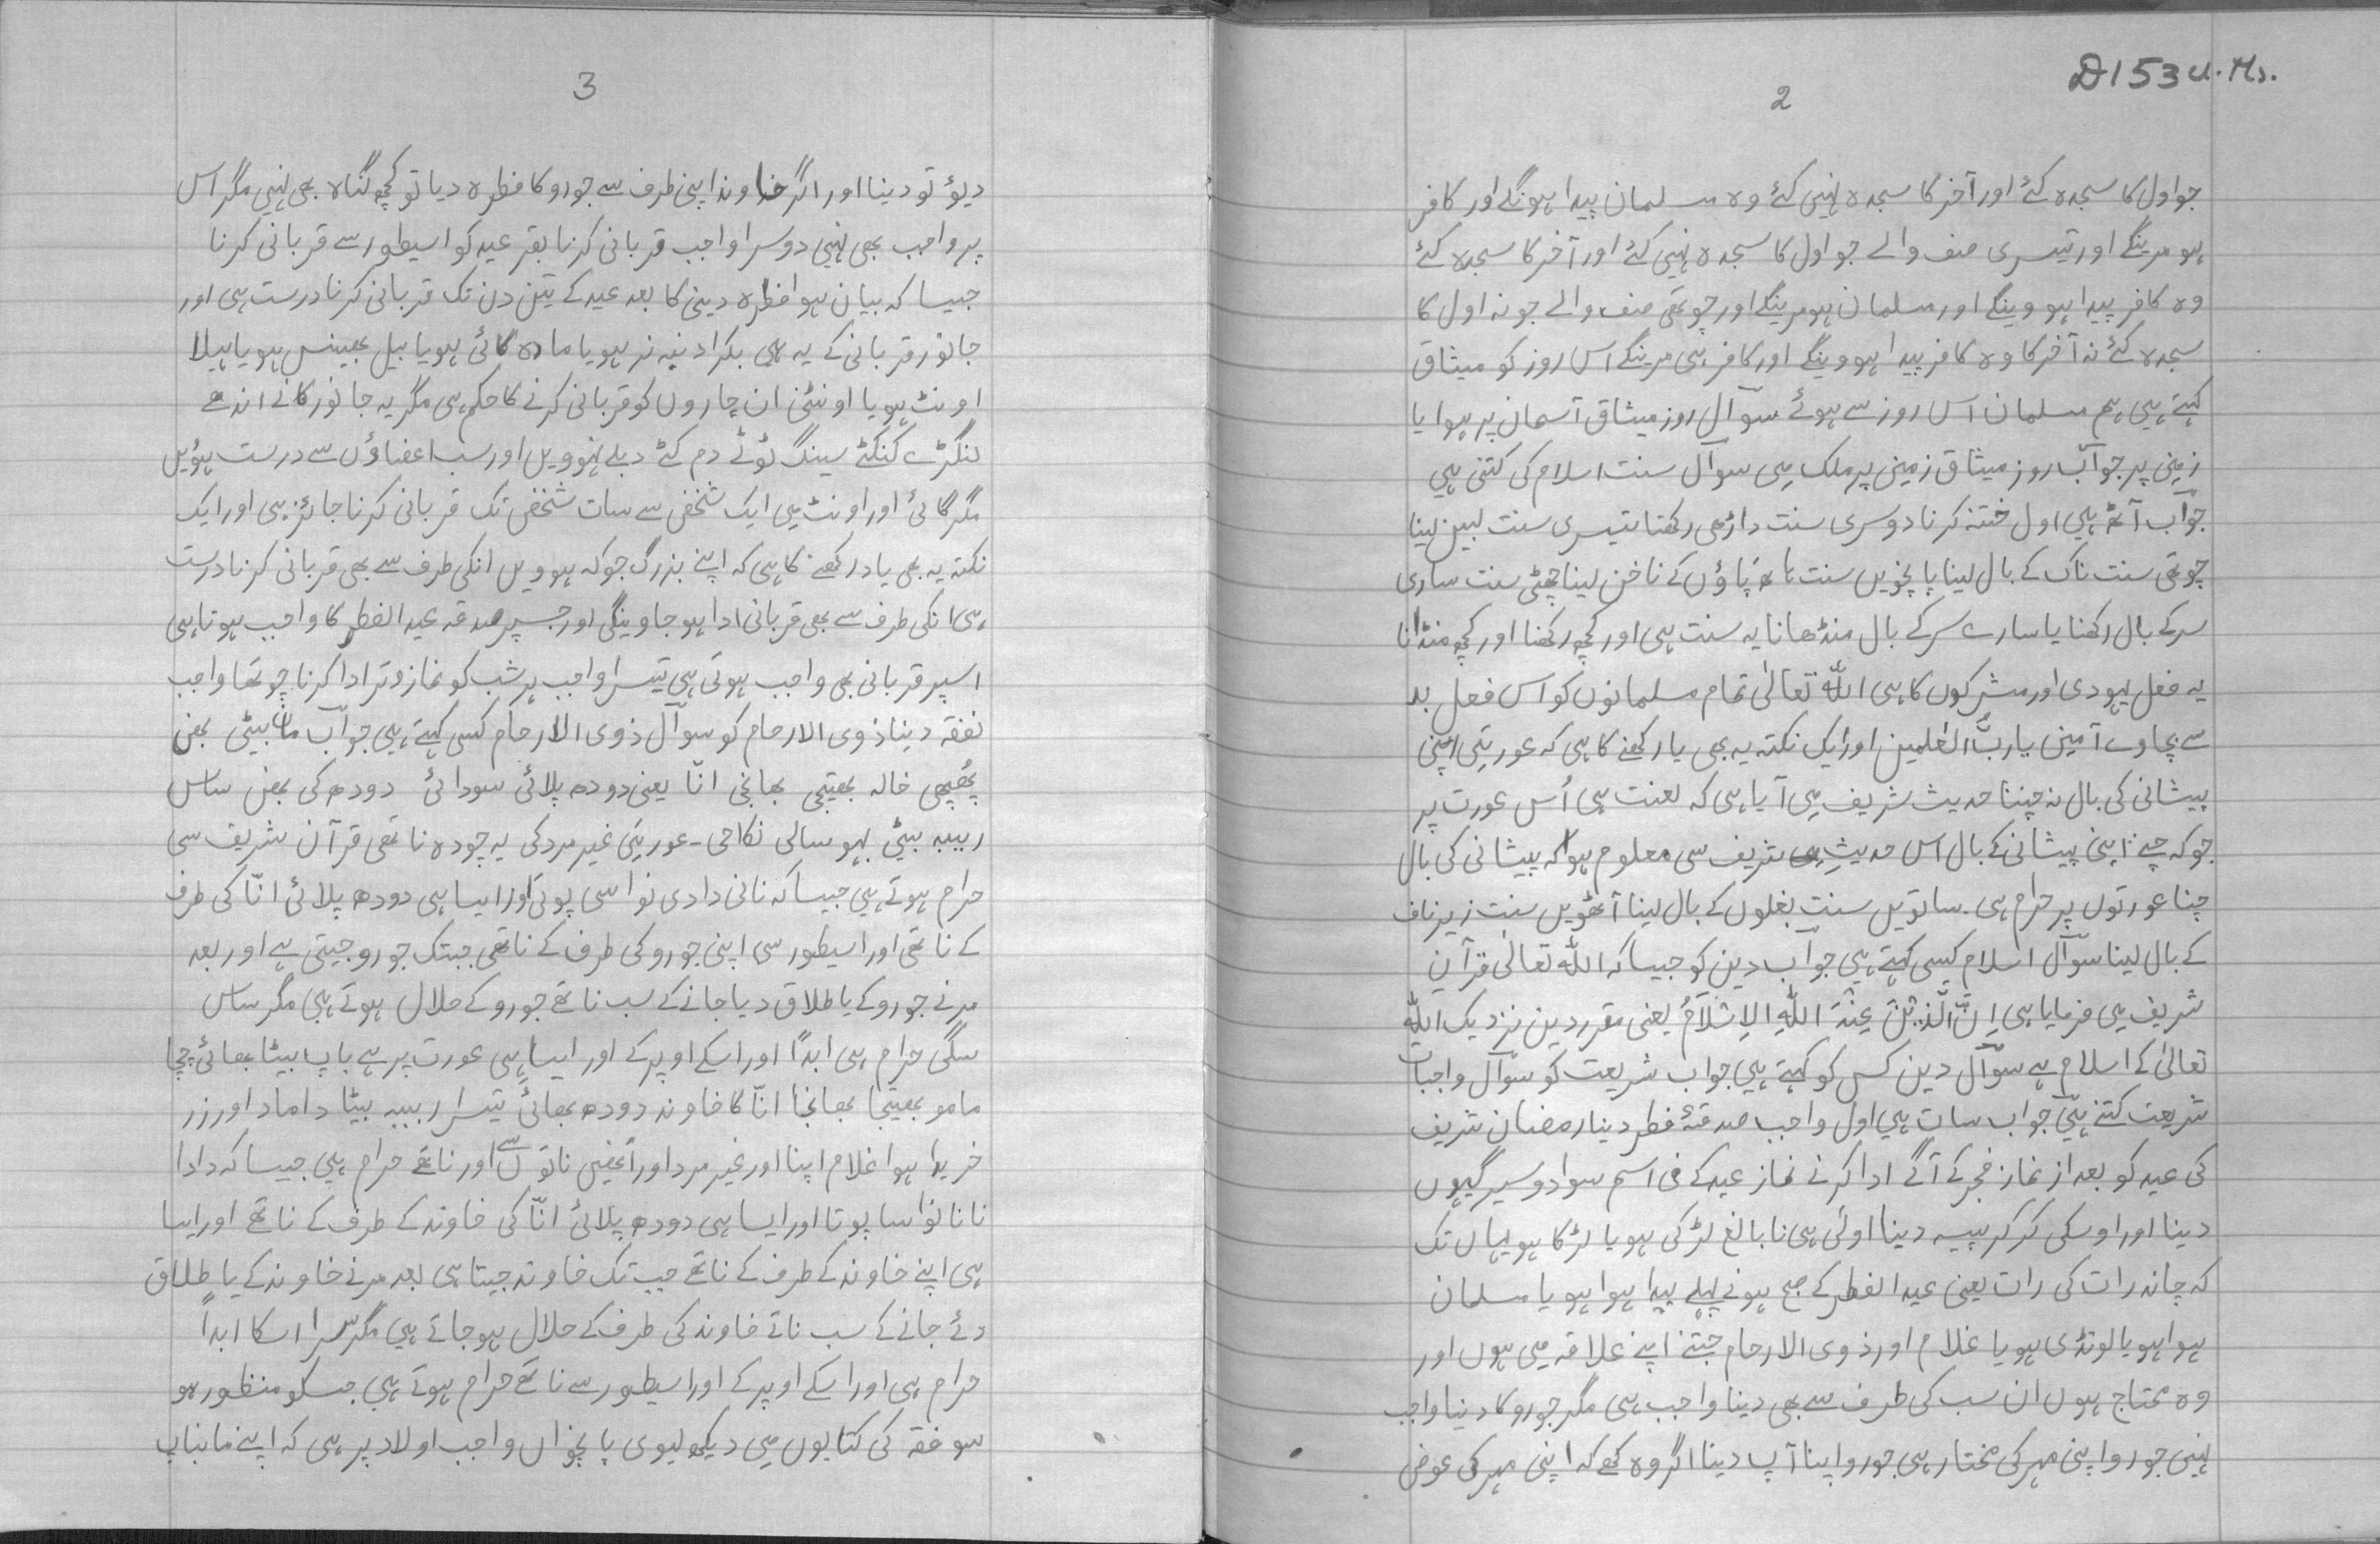 D153 U. Ms.
2
جو اول کا سجدہ کئے اور آخر کا سجدہ نہیں کئے وہ مسلمان پیدا ہونگے اور کافر
ہو مرینگے اور تیسری صف والے جو اول کا سجدہ نہیں کئے اور آخر کا سجدہ کئے
وہ کافر پیدا ہووینگے اور مسلمان ہو مرینگے اور چوتھی صف والے جو نہ اول کا
سجدہ کئے نہ آخر کا وہ کافر پیدا ہووینگے اور کافر ہی مرینگے اس روز کو میثاق
کہتے ہیں ہم مسلمان اس روز سے ہوئے سوآل روز میثاق آسمان پر ہوا یا
زمین پر جوآب روز میثاق زمین پر ملک میں سوآل سنت اسلام کی کتنی ہیں
جوآب آٹھ ہیں اول ختنہ کرنا دوسری سنت داڑھی رکھنا تیسری سنت لبین لینا
چوتھی سنت ناک کے بال لینا پانچویں سنت ہاتھ پاؤں کے ناخن لینا چھٹی سنت ساری
سر کے بال رکھنا یا سارے سر کے بال منڈھانا یہ سنت ہی اور کچھ رکھنا اور کچھ منڈانا
یہ فعل یہودی اور مشرکوں کا ہی اللّٰہ تعالیٰ تمام مسلمانوں کو اس فعل بد
سے بچاوے آمین یا ربّ العٰلمین اور ایک نکتہ یہ بھی یاد رکھنے کا ہی کہ عورتیں اپنی
پیشانی کی بال نہ چننا حدیث شریف میں آیا ہی کہ لعنت ہی اُس عورت پر
جو کہ چنے اپنی پیشانی کے بال اس حدیث شریف سی معلوم ہوا کہ پیشانی کی بال
چننا عورتوں پر حرام ہی۔ ساتویں سنت بغلوں کے بال لینا آٹھویں سنت زیر ناف
کے بال لینا سوآل اسلام کیسی کہتے ہیں جوآب دین کو جیسا کہ اللّٰہ تعالیٰ قرآن
شریف میں فرمایا ہی اِنَّ الَّدِیْنَ عِنْدَ اللّٰہِ الاِسْلَامُ یعنی مقرر دین نزدیک اللّٰہ
تعالیٰ کے اسلام ہے سوآل دین کس کو کہتے ہیں جواب شریعت کو سوآل واجبات
شریعت کتنے ہیں جواب سات ہیں اول واجب صدقۂ فطر دینا رمضان شریف
کی عید کو بعد از نماز فجر کے آگے ادا کرنے نماز عید کے فی اسم سوا دو سیر گیہوں
دینا اور اوسکی کر کر پیسہ دینا اولیٰ ہی نابالغ لڑکی ہو یا لڑکا ہو یہاں تک
کہ چاند رات کی رات یعنی عید الفطر کے صبح ہونے پہلے پیدا ہوا ہو یا مسلمان
ہوا ہو یا لونڈی ہو یا غلام اور ذوی الارحام جتنے اپنے علاقہ میں ہوں اور
وہ محتاج ہوں ان سب کی طرف سے بھی دینا واجب ہی مگر جورو کا دنیا واجب
نہیں جورو اپنی مہر کی مختار ہی جورو اپنا آپ دینا اگر وہ کہے کہ اپنی مہر کی عوض
3
دیوٗ تو دینا اور اگر خاوند اپنی طرف سے جورو کا فطرہ دیا تو کچھ گناہ بھی نہیں مگر اس
پر واجب بھی نہیں دوسرا واجب قربانی کرنا بقر عید کو اسیطور سے قربانی کرنا
جیسا کہ بیان ہوا فطرہ دینی کا بعد عید کے تین دن تک قربانی کرنا درست ہی اور
جانور قربانی کے یہ ہیں بکرا دنبہ نر ہو یا مادہ گائی ہو یا بیل بھینس ہو یا ہیلا
اونٹ ہو یا اونٹنی ان چاروں کو قربانی کرنے کا حکم ہی مگر یہ جانور کانے اندھے
لنگڑے کنکٹے سینگ ٹوٹے دم کٹے دبلے نہوویں اور سب اعضاؤں سے درست ہوئیں
مگر گائی اور اونٹ میں ایک شخص سے سات شخص تک قربانی کرنا جائز ہی اور ایک
نکتہ یہ بھی یاد رکھنے کا ہی کہ اپنے بزرگ جو کہ ہوویں انکی طرف سے بھی قربانی کرنا درست
ہی انکی طرف سے بھی قربانی ادا ہو جاوینگی اور جسپر صدقہ عید الفطر کا واجب ہوتا ہی
اسپر قربانی بھی واجب ہوتی ہی تیسرا واجب ہر شب کو نماز وتر ادا کرنا چوتھا واجب
نفقہ دینا ذوی الارحام کو سوآل ذوی الارحام کسی کہتے ہیں جوآب ماں بیٹی بھن
پھُپھی خالہ بھتیجی بھانجی انّا یعنی دودھ پلائی سودائی دودھ کی بھن ساس
ربیبہ بیٹی بہو سالی نکاحی۔ عورتیں غیر مرد کی یہ چودہ ناتھی قرآن شریف سی
حرام ہوتے ہیں جیسا کہ نانی دادی نواسی پوتی اور ایسا ہی دودھ پلائی انّا کی طرف
کے ناتھی اور اسیطور سی اپنی جورو کی طرف کے ناتھی جبتک جورو جیتی ہے اور بعد
مرنے جورو کے یا طلاق دیا جانے کے سب ناتھے جورو کے حلال ہوتے ہیں مگر ساس
سگی حرام ہی ابداً اور اسکے اوپر کے اور ایسا ہی عورت پر ہے باپ بیٹا بھائی چچا
مامو بھتیجا بھانجا انّا کا خاوند دودھ بھائی تیسرا ربیبہ بیٹا داماد اور زر
خریدا ہوا غلام اپنا اور غیر مرد اور اُنھیں ناتوں سے اور ناتھے حرام ہیں جیسا کہ دادا
نانا نواسا پوتا اور ایسا ہی دودھ پلائی انّا کی خاوند کے طرف کے ناتھے اور ایسا
ہی اپنے خاوند کے طرف کے ناتھے جب تک خاوند جیتا ہی بعد مرنے خاوند کے یا طلاق
دئے جانے کے سب ناتے خاوند کی طرف کے حلال ہو جاتے ہیں مگر سسرا اسکا ابداً
حرام ہی اور اسکے اوپر کے اور اسیطور سے ناتھے حرام ہوتے ہیں جسکو منظور ہو
سو فقہ کی کتابوں میں دیکھ لیوی پانچواں واجب اولاد پر ہی کہ اپنے مانباپ